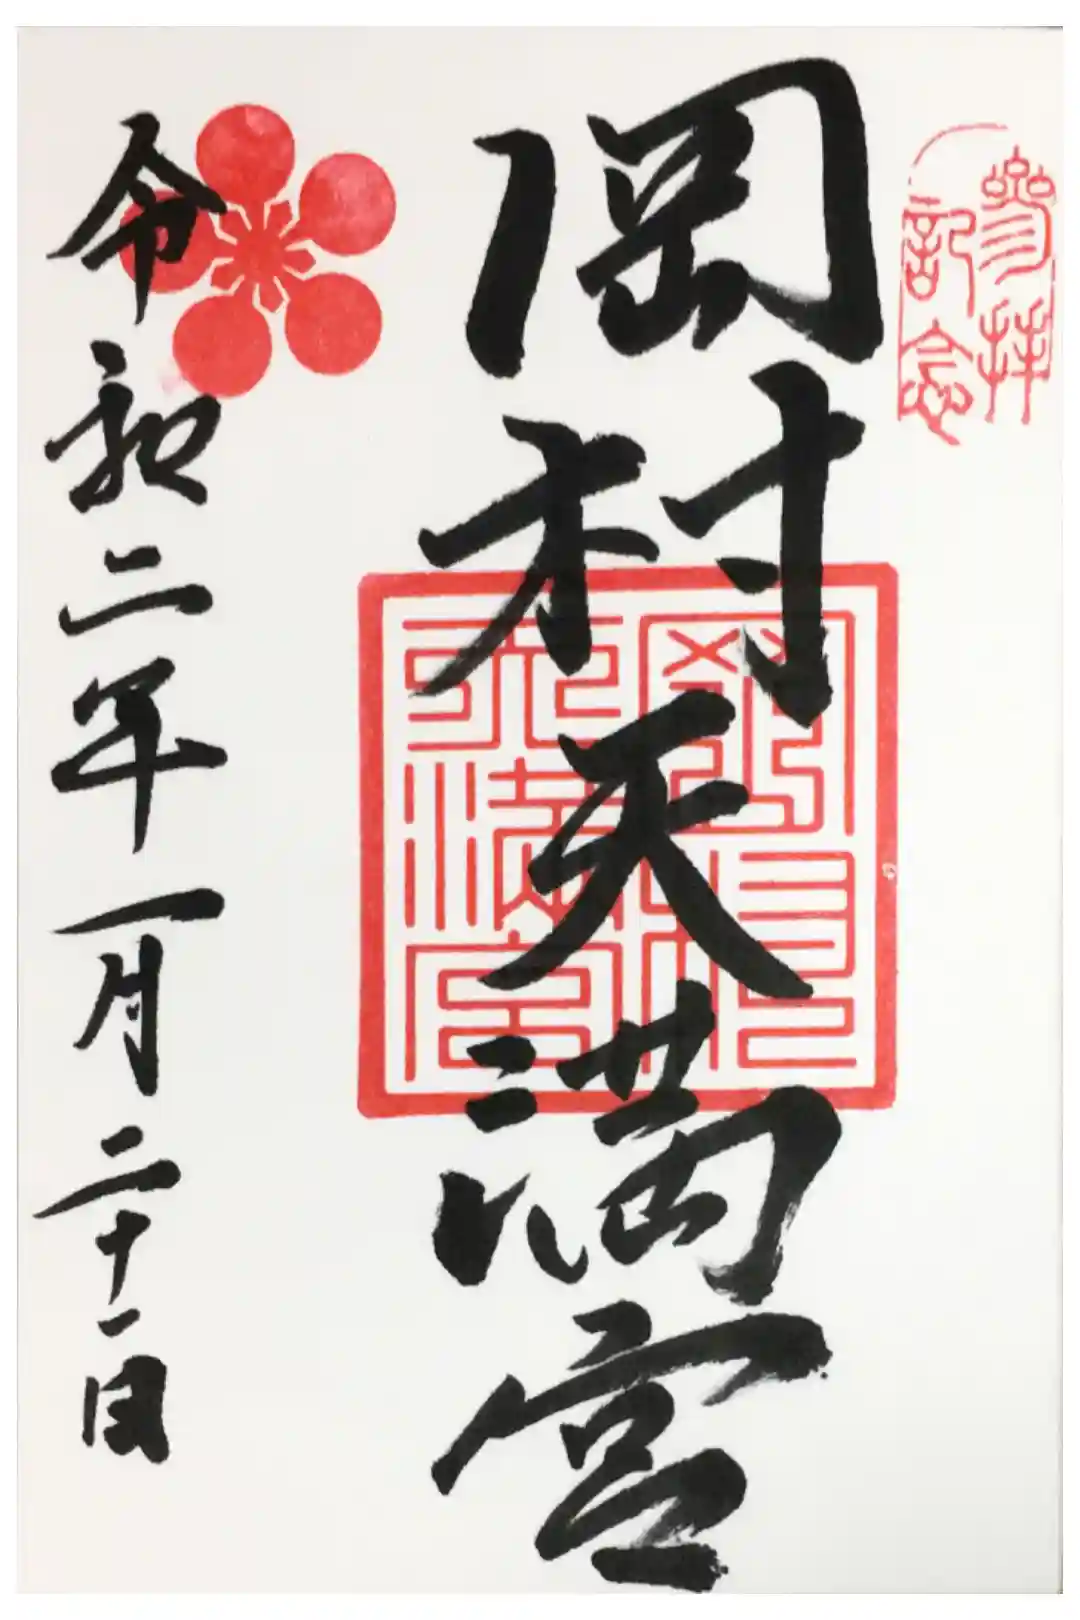 參拝
記念
岡村天満宮
岡村
天満宮
令和二年一月二十一日